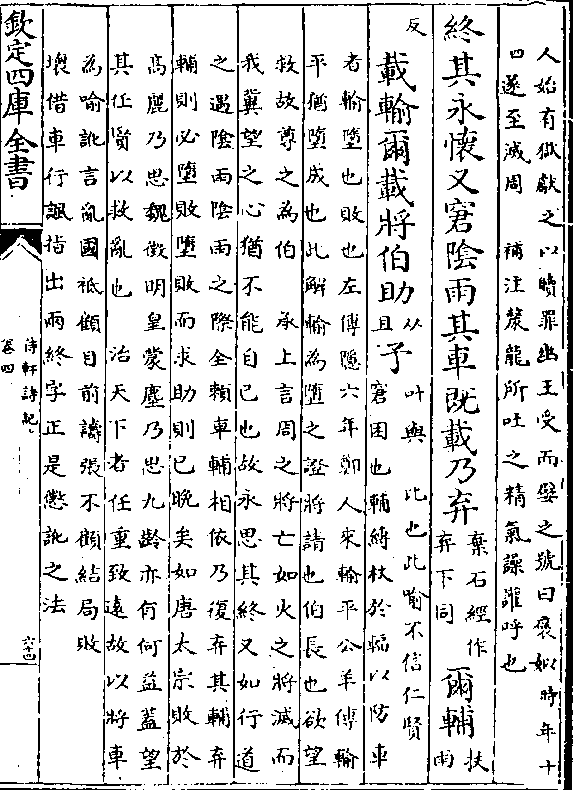 人始有獄獻之以贖罪幽王受而嬖之號曰褒姒時年十
四遂至滅周　補注漦龍所吐之精氣譟讙呼也
終其永懷又窘陰雨其車既載乃弃棄石經作弃下同爾輔扶雨
反載輸爾載將伯助从且予叶與　比也此喻不信仁賢
窘困也輔縛杖於輻以防車
者輸墮也敗也左傳隱六年鄭人來輸平公羊傳輸
平猶墮成也此解輸為墮之證將請也伯長也欲望
救故尊之為伯　承上言周之將亡如火之將滅而
我冀望之心猶不能自已也故永思其終又如行道
之遇陰雨陰雨之際全賴車輔相依乃復弃其輔弃
輔則必墮敗墮敗而求助則已晚矣如唐太宗敗於
高麗乃思魏徵明皇蒙塵乃思九齡亦有何益蓋望
其任賢以救亂也　治天下者任重致遠故以將車
為喻訛言亂國祗顧目前譸張不顧結局敗
壞借車行諷指出兩終字正是懲訛之法
欽定四庫全書
待軒詩記
卷四
六十四